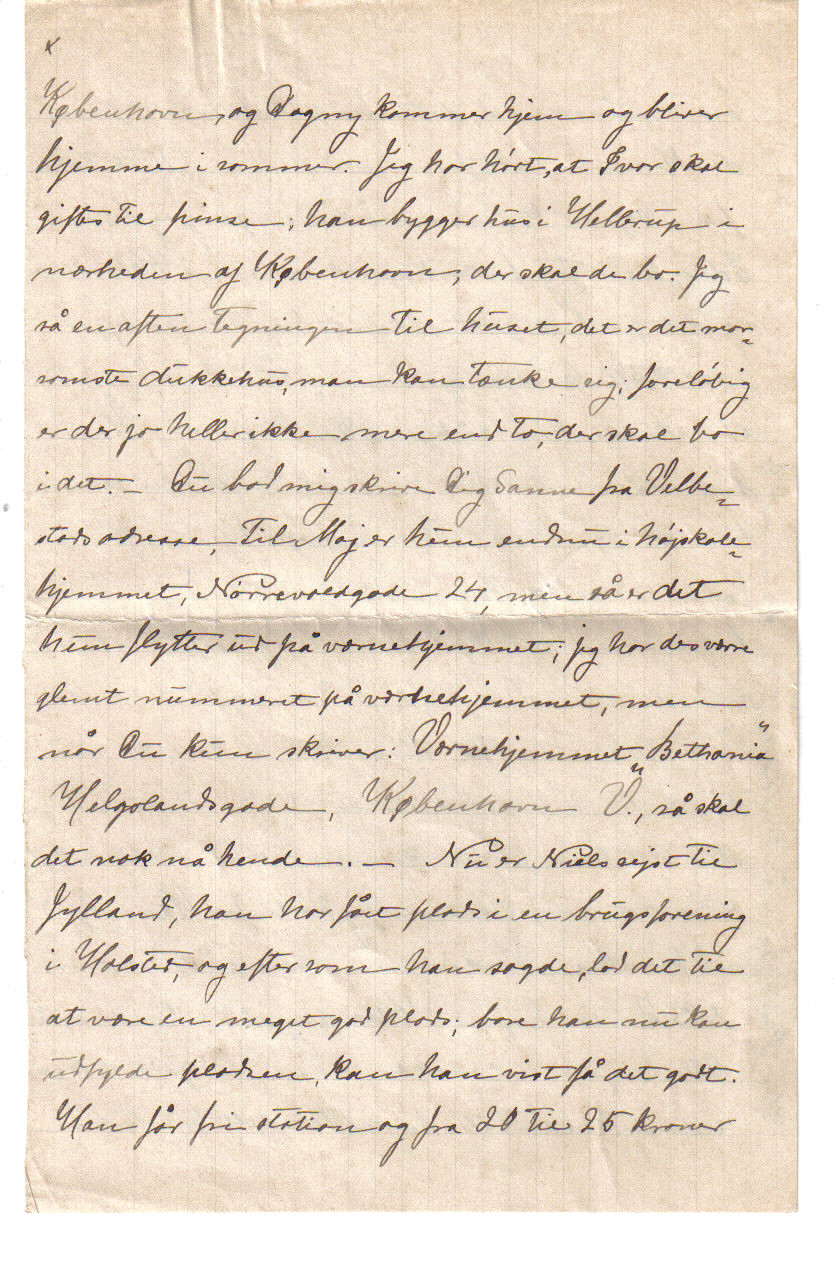 København, og Dagny kommer hjem og bliver
hjemme i sommer. Jeg har hört, at Ivar skal
giftes til pinse; han bygger hus i Hellerup i
nærheden af København, der skal de bo. Jeg
så en aften tegningen til huset, det er det mor-
somste dukkehus, man kan tænke sig; forelöbig
er der jo heller ikke mere end to, der skal bo
i det. – Du bad mig skrive Dig Sanne fra Velbe-
stads adresse, til Maj er hun endnu i höjskole-
hjemmet, Nörrevoldgade 24, men så er det
hun flytter ud på værnehjemmet; jeg har desværre
glemt nummeret på værnehjemmet, men
når Du kun skriver: Værnehjemmet „Bethania"
Helgolandsgade, København V., så skal
det nok nå hende. – Nu er Niels rejst til
Jylland, han har fået plads i en brugsforening
i Holsted, og efter som han sagde, lod det til
at være en meget god plads; bare han nu kan
udfylde pladsen, kan han vist få det godt.
Han får fri station og fra 20 til 25 kroner